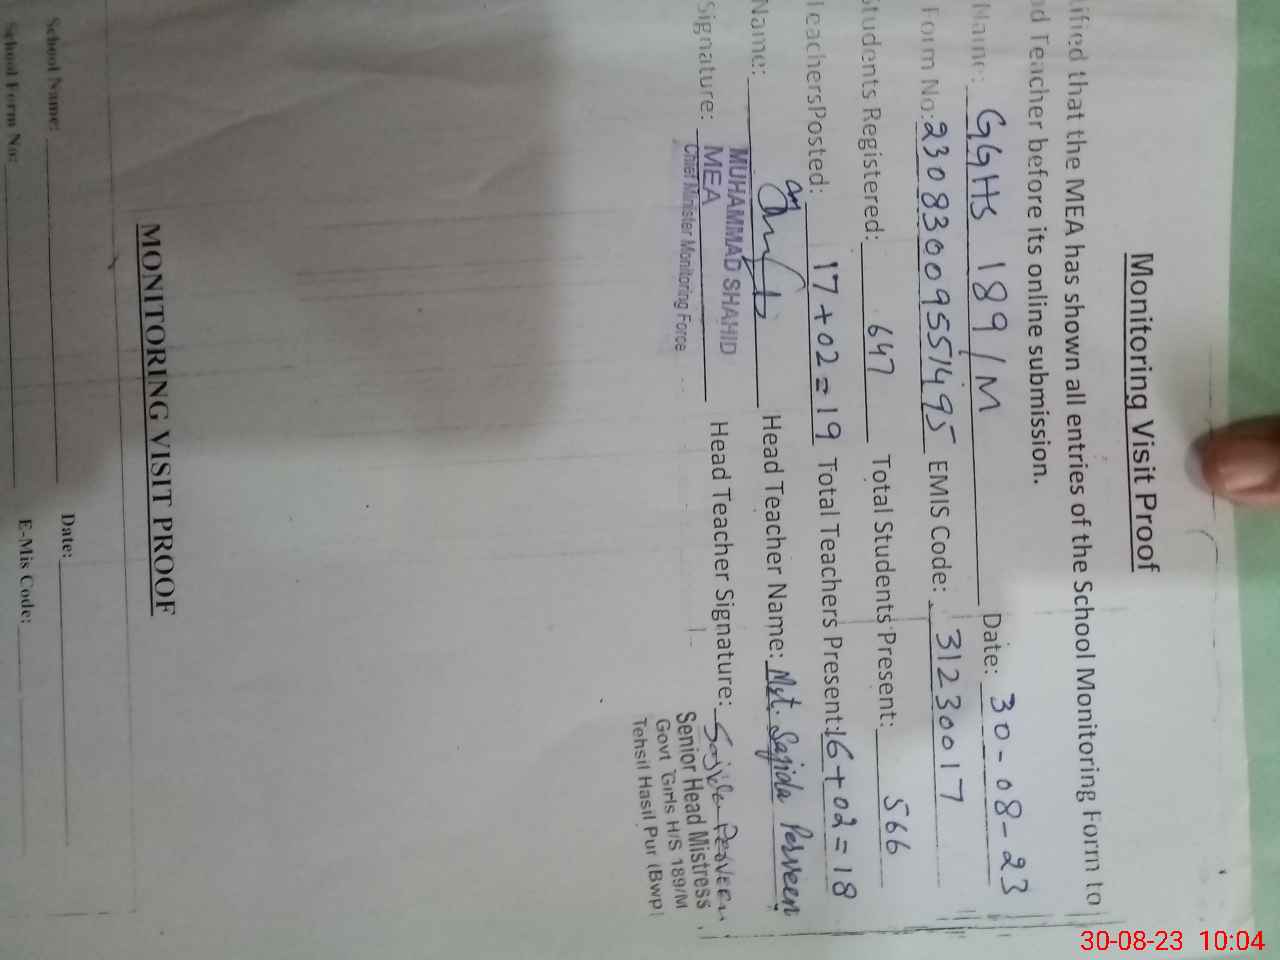 Monitoring Visit Proof
ified that the MEA has shown all entries of the School Monitoring Form to
d Teacher before its online submission.
Name: GGHS 189/M Date: 30-08-23
Form No: 23083009551495 EMIS Code: 31230017
Students Registered: 647 Total Students Present: 566
TeachersPosted: 17+02=19 Total Teachers Present: 16+02=18
Name: Head Teacher Name: Mst. Sajida Perveen
MUHAMMAD SHAHID
Signature: MEA Head Teacher Signature: Sajida Perveen
Chief Minister Monitoring Force
Senior Head Mistress
Govt Girls H/S 189/M
Tehsil Hasil Pur (Bwp)
MONITORING VISIT PROOF
School Name: Date:
School Form No: E-Mis Code:
30-08-23 10:04